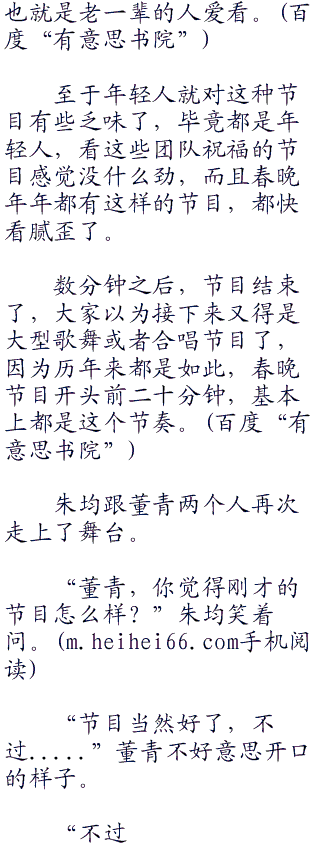 也就是老一辈的人爱看。(百
度“有意思书院”)
至于年轻人就对这种节
目有些乏味了，毕竟都是年
轻人，看这些团队祝福的节
目感觉没什么劲，而且春晚
年年都有这样的节目，都快
看腻歪了。
数分钟之后，节目结束
了，大家以为接下来又得是
大型歌舞或者合唱节目了，
因为历年来都是如此，春晚
节目开头前二十分钟，基本
上都是这个节奏。(百度“有
意思书院”)
朱均跟董青两个人再次
走上了舞台。
“董青，你觉得刚才的
节目怎么样？”朱均笑着
问。(m.heihei66.com手机阅
读)
“节目当然好了，不
过.....”董青不好意思开口
的样子。
“不过